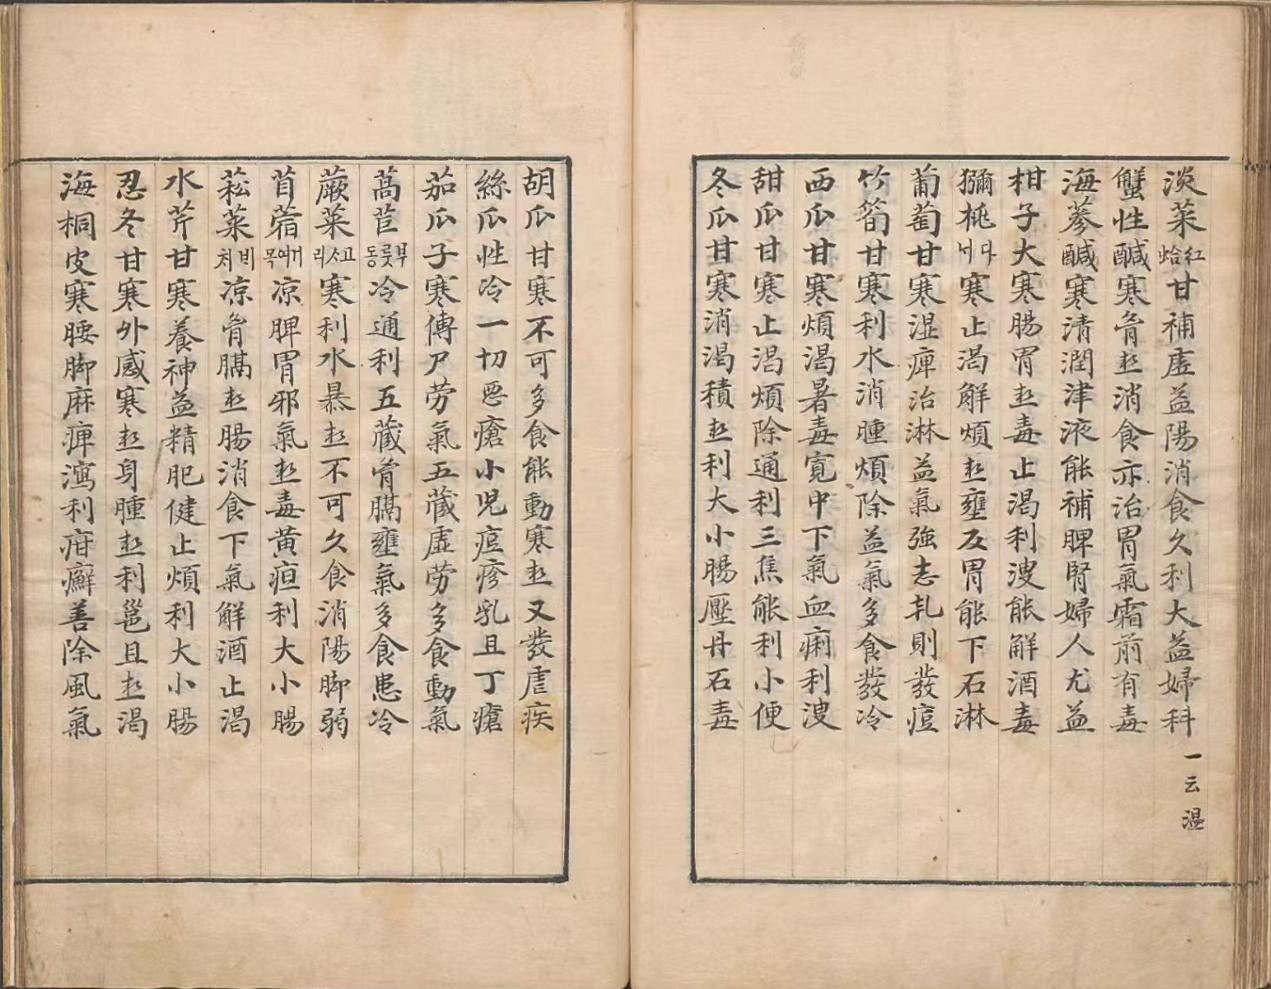 淡菜紅蛤甘補虛益陽消食久利大益婦科一云溫
蟹性鹹寒胷𤍠消食亦治胃氣霜前有毒
海蔘鹹寒清潤津液能補脾腎婦人尤益
柑子大寒腸胃𤍠毒止渴利溲能解酒毒
獼桃ᄃᆞ래寒止渴解煩𤍠壅反胃能下石淋
葡萄甘寒濕痺治淋益氣強志虬則發痘
竹筍甘寒利水消腫煩除益氣多食發冷
西瓜甘寒煩渴暑毒寬中下氣血痢利溲
甜瓜甘寒止渴煩除通利三焦能利小便
冬瓜甘寒消渴積𤍠利大小腸壓丹石毒
胡瓜甘寒不可多食能動寒𤍠又發瘧疾
絲瓜性冷一切惡瘡小兒痘疹乳疽丁瘡
茄瓜子寒傳尸劳氣五蔵虛劳多食動氣
萵苣부룻동冷通利五蔵胷膈壅氣多食患冷
蕨菜고사리寒利水暴𤍠不可久食消陽脚弱
苜蓿게여목凉脾胃邪氣𤍠毒黃疸利大小腸
菘菜비치凉胷膈𤍠腸消食下氣解酒止渴
水芹甘寒養神益精肥健止煩利大小腸
忍冬甘寒外感寒𤍠身腫𤍠利邕且𤍠渴
海桐皮寒腰脚麻痺瀉利疳癬善除風氣